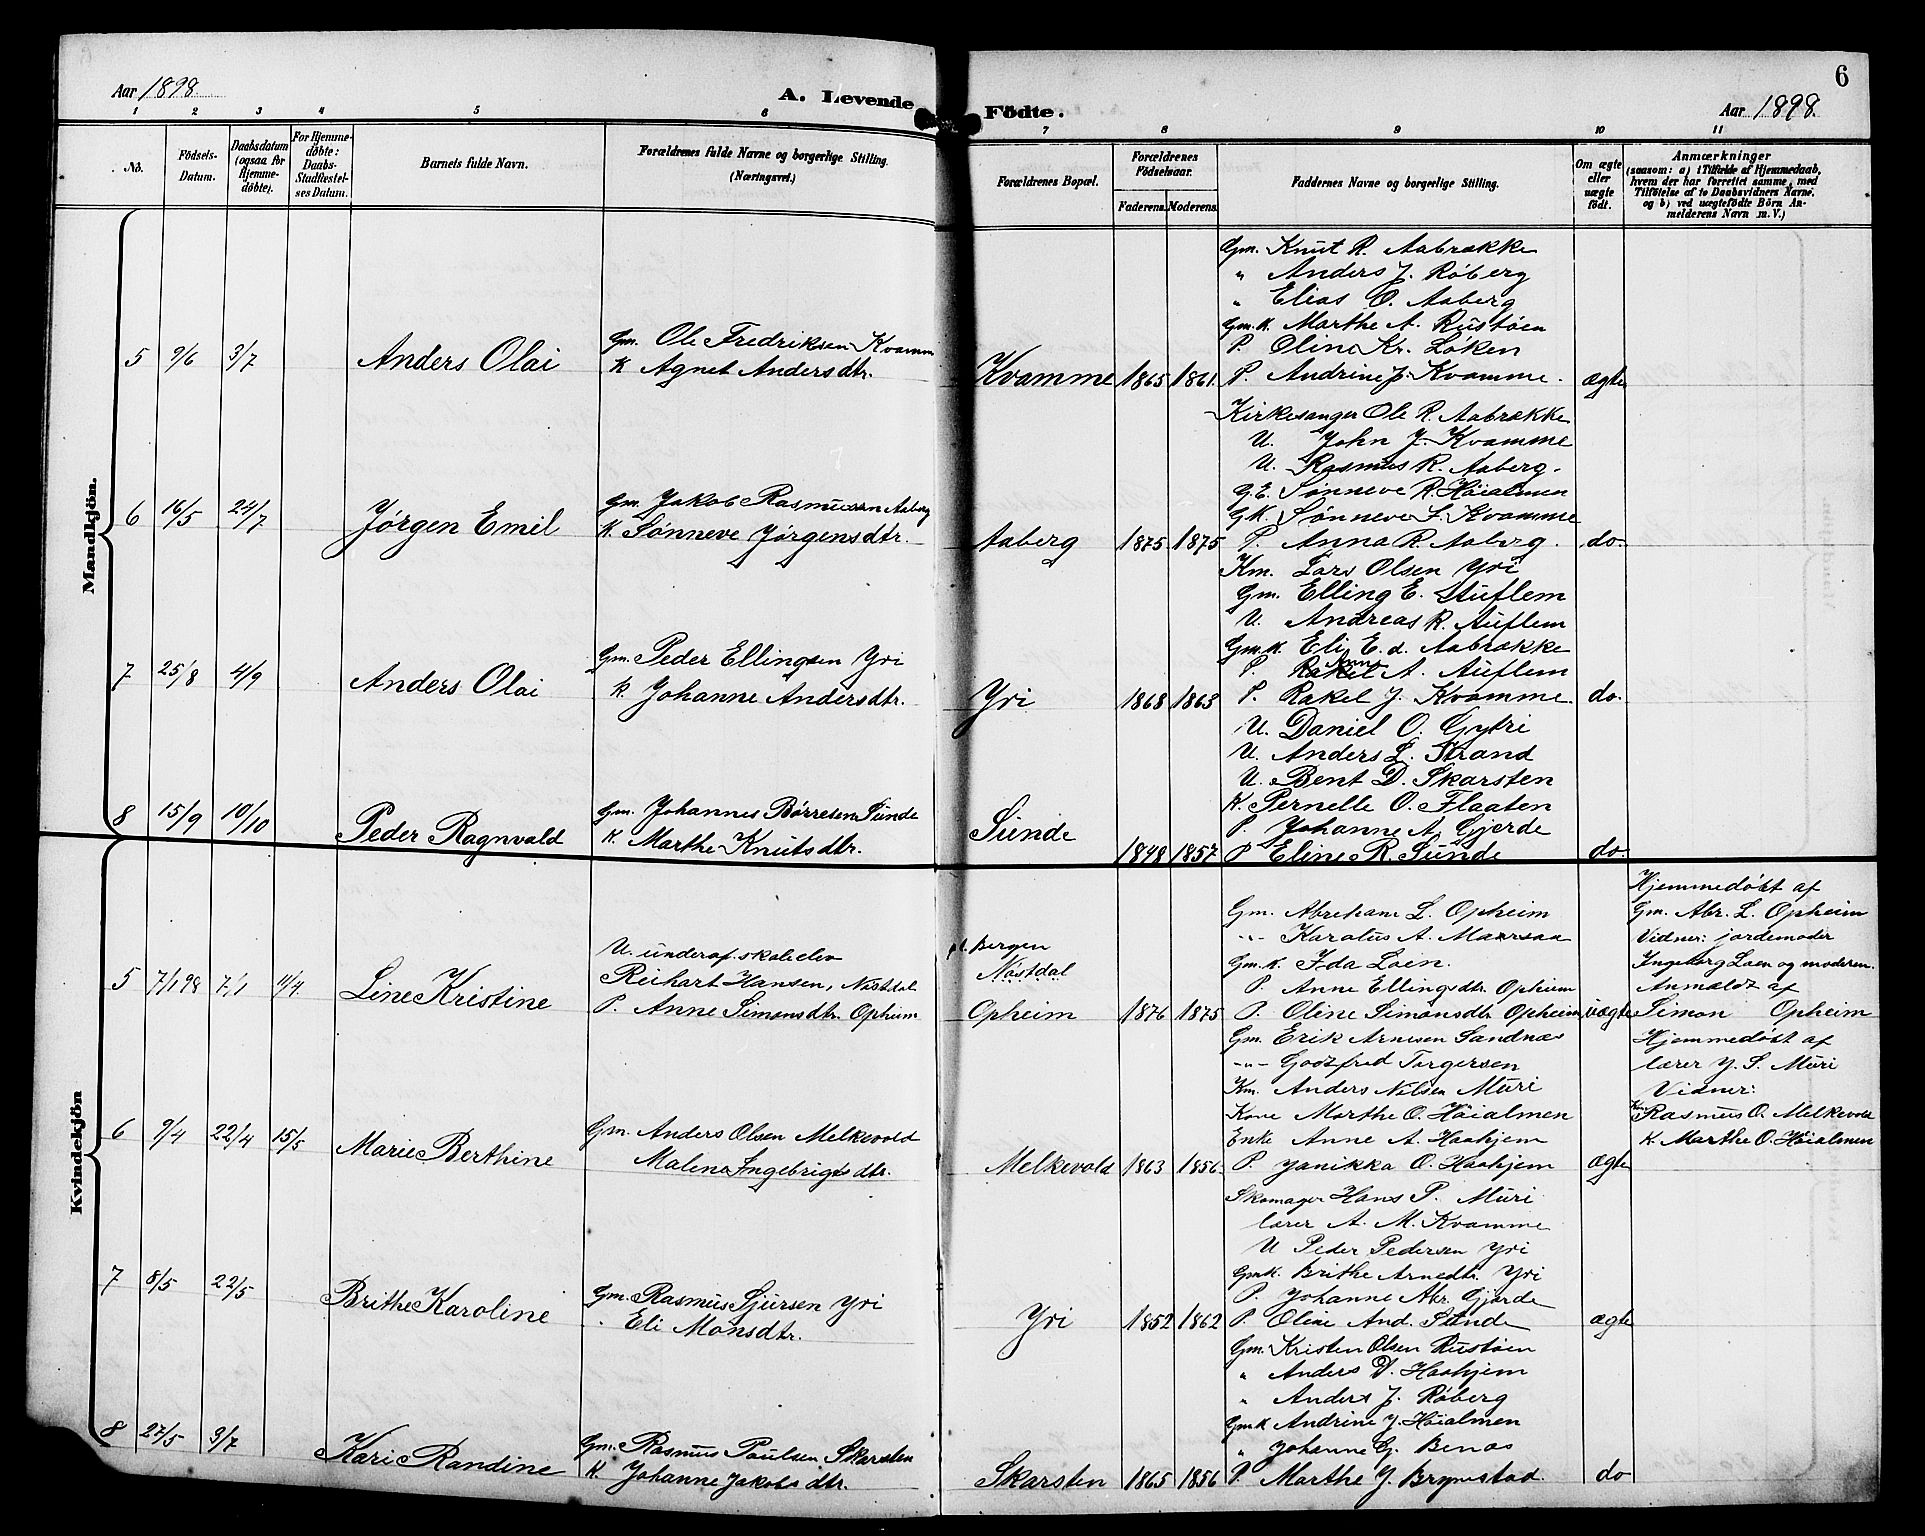 6
Aar 1898.
A. Levende Födte.
Aar 1898.
1 2 3 4 5 6 7 8 9 10 11
No.
Födsels-Datum.
Daabsdatum (ogsaa for Hjemmedøbte).
For Hjemmedøbte: Daabs-Stadfæstelses Datum.
Barnets fulde Navn.
Forældrenes fulde Navne og borgerlige Stilling. (Næringsvei.)
Forældrenes Bopæl.
Forældrenes Födselsaar.
Faderens. Moderens.
Faddernes Navne og borgerlige Stilling.
Om ægte eller uægte født.
Anmærkninger
(saasom: a) i Tilfælde af Hjemmedaab, hvem der har forrettet samme, med Tilföielse af to Daabsvidners Navne, og b) ved uægtefødte Börn Anmelderens Navn m. V.)
Mandkjön.
5 9/6 3/7
Anders Olai
Gm. Ole Fredriksen Kvamm
K Agnet Andersdtr.
Kvamme 1865 1861.
Gm. Knut R. Aabrække
" Anders J. Røberg
" Elias O. Aaberg
Gm.K. Marthe A. Rustøen
P. Oline Kr. Løken
P. Andrine J. Kvamme.
ægte
6 16/5 24/7
Jørgen Emil
Gm. Jakob Rasmussen Aaberg
K. Sønneve Jørgensdtr.
Aaberg 1875 1875
Kirkesanger Ole R. Aabrække
U. John J. Kvamme
U. Rasmus R. Aaberg.
G.E. Sønneve R. Höialmen
G.K. Sønneve F. Kvamme
P. Anna R. Aaberg.
do.
7 25/8 4/9
Anders Olai
Gm. Peder Ellingsen Yri
K. Johanne Andersdtr.
Yri 1868 1863
Km. Lars Olsen Yri
Gm. Elling E. Stuflem
U. Andreas R. Auflem
Gm.K. Eli E.d. Aabrække
P. Rakel Anna A. Auflem
P. Rakel J. Kvamme.
do.
8 15/9 10/10
Peder Ragnvald
Gm. Johannes Børresen Sunde
K. Marthe Knutsdtr.
Sunde 1848 1857
U. Daniel O. Gytri
U. Anders L. Strand
U. Bent D. Skarsten
K. Pernelle O. Flaaten
P. Johanne A. Gjerde
P Eline R. Sunde
do.
Kvindekjön
5 7/1 98 7/1 11/4.
Line Kristine
U. underof. skoleelev
Reihart Hansen, Nöstdal
P. Anne Simonsdtr. Opheim
Bergen
Nöstdal
Opheim 1876 1875
Gm. Abraham L. Opheim
-"- Karolus A. Maarsaa
Gm.K. Ida Loen.
P. Anne Ellingsdtr. Opheim
P. Oline Simonsdtr Opheim
uægte
Hjemmedöbt af
Gm. Abr. L. Opheim
Vidner: jordemoder
Ingeborg Loen og moderen.
Anmeldt af
Simon Opheim
6 9/4 22/4 15/5
Marie Berthine
Gm. Anders Olsen Melkevold
Malene Ingebrigtsdtr.
Melkevold 1863 1856.
Gm. Erik Arnesen Sandnes
-"- Godtfred Torgersen
Km. Anders Nilsen Muri
Kone Marthe O. Höialmen
Enke Anne A. Haahjem
P. Janikka O. Haahjem
ægte
Hjemmedöbt af
lærer Y. S. Muri
Vidner:
Rasmus O. Melkevold
K Marthe O. Höialmen
7 8/5 22/5
Brithe Karoline
Gm. Rasmus Sjursen Yri
Eli Monsdtr.
Yri 1852 1862
Skomager Hans P. Muri
lærer A. M. Kvamme
U Peder Pedersen Yri
GmK. Brithe Arnedtr. Yri
P. Johanne Abr. Gjerde
P. Oline And. Sunde
ægte
8 27/5 3/7
Kari Randine
Gm. Rasmus Paulsen Skarsten
K. Johanne Jakobsdtr.
Skarsten 1865 1856
Gm. Kristen Olsen Rustøen
" Anders D. Haahjem
" Anders J. Røberg
GmK Andrine J. Höialmen
" Johanne G. Benas
P. Marthe J. Brynestad.
do